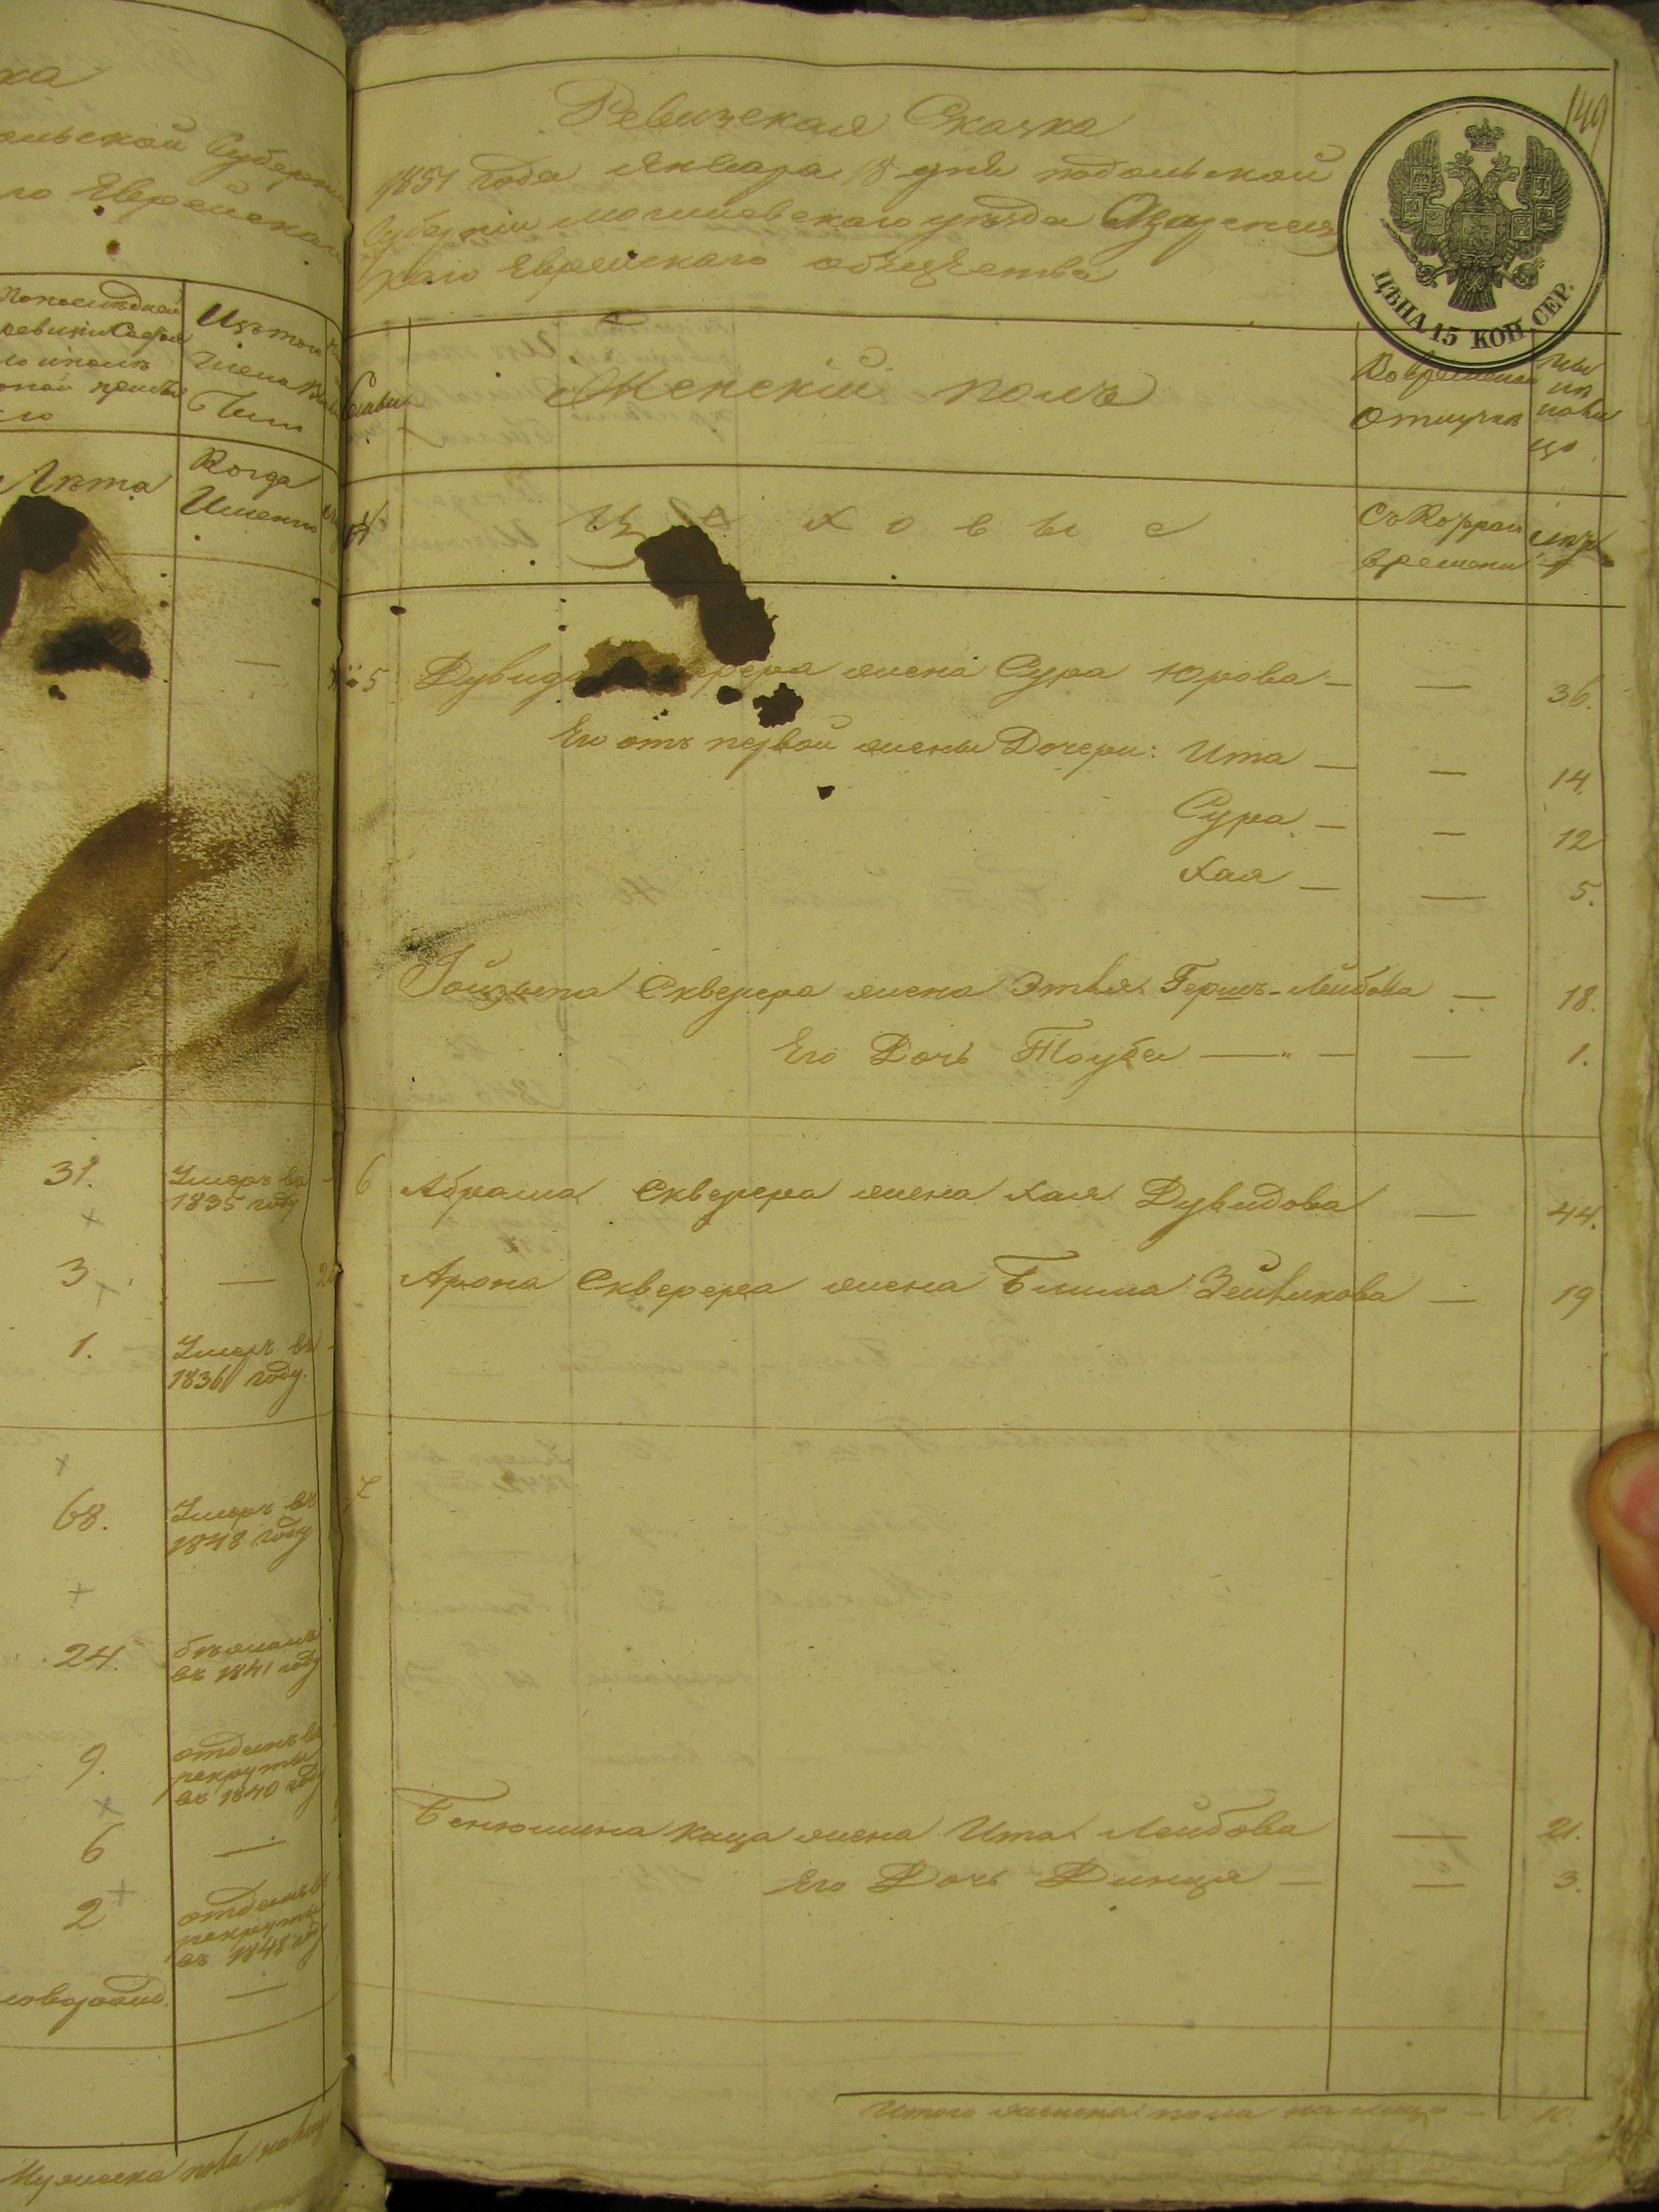 ка
ольской Губерніи
го Еврейскаго
По последней
ревизіи состоя
ло и после
оной прибы
ло
Изъ того
числа
выбыло
Лета
Когда
Именно
31.
Умеръ въ
1835 году
3
1.
Умеръ въ
1836 году.
68.
Умеръ въ
1848 году
24.
бежалъ
въ 1841 году
9.
отданъ въ
рекруты
въ 1840 году
6
2
отданъ въ
рекруты
въ 1848 году
новорожд.
Мужеска пола на лицо
149
Ревизская Сказка
1851 года Января 8 дня подольской
Губерніи могилевскаго уезда
каго Еврейскаго общества
ЦѢНА 15 КОП. СЕР.
Семьи
Женскій полъ
Во временной
отлучке
ны
не
на ли
цо
№
Ц е х о в ы е
Съ Котораго
времени
Лета
5 Дувида жена Сура Юрова — — 36.
Его отъ первой жены Дочери: Ита — — 14.
Сура — — 12
Хая — — 5.
Іойзыпа Скверера жена Этля Гершъ-Лейбова — 18.
Его Дочь Тауба — " — — 1.
6 Абрама Скверера жена Хая Дувидова — 44.
Арона Скверера жена Блима Зейликова — 19
7
Бенюмина Каца жена Ита Лейбова — 21.
Его Дочь Динця — — 3.
Итого женска пола на лицо — 10.